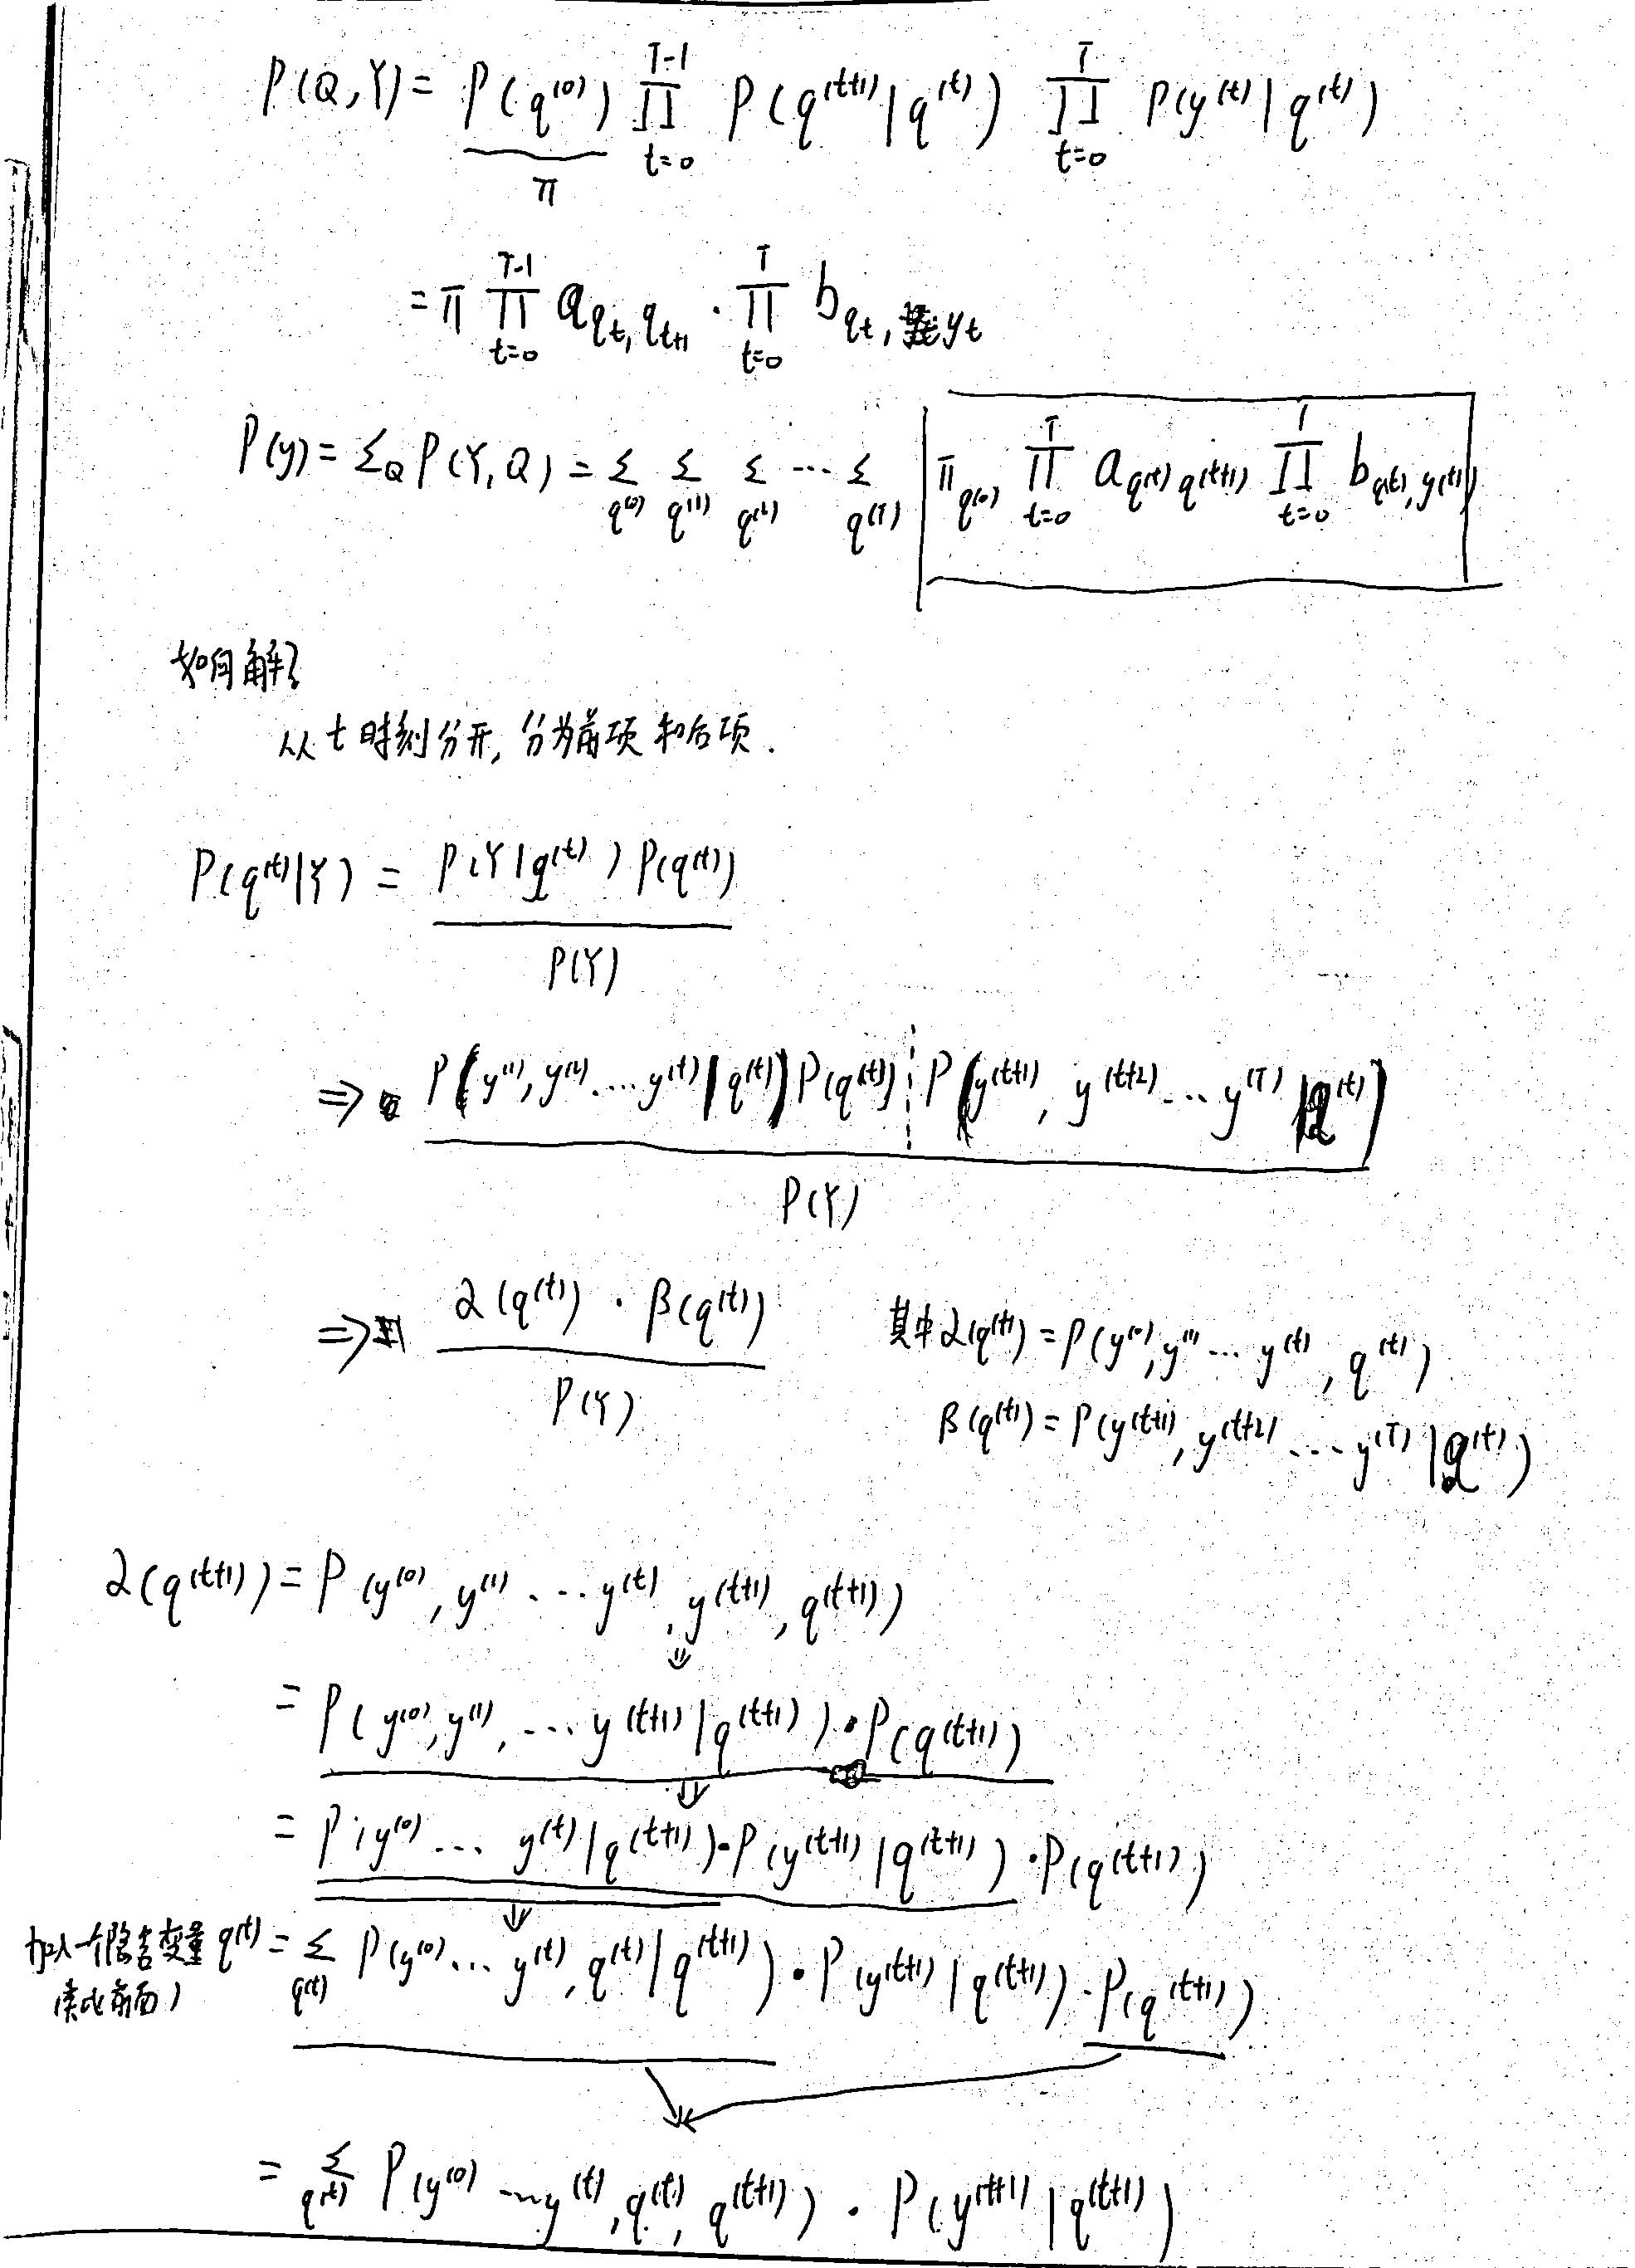 P(Q,Y) = P(q^{(0)}) ∏_{t=0}^{T-1} P(q^{(t+1)}|q^{(t)}) ∏_{t=0}^{T} P(y^{(t)}|q^{(t)})
π
= π ∏_{t=0}^{T-1} a_{q_t, q_{t+1}} · ∏_{t=0}^{T} b_{q_t, y_t}
P(y) = Σ_Q P(Y,Q) = Σ_{q^{(0)}} Σ_{q^{(1)}} Σ_{q^{(2)}} ... Σ_{q^{(T)}} π_{q^{(0)}} ∏_{t=0}^{T} a_{q^{(t)} q^{(t+1)}} ∏_{t=0}^{T} b_{q^{(t)}, y^{(t)}}
如何解?
从 t 时刻分开, 分为前项和后项.
P(q^{(t)}|Y) = P(Y|q^{(t)}) P(q^{(t)}) / P(Y)
⇒ P(y^{(1)}, y^{(2)} ... y^{(t)}|q^{(t)}) P(q^{(t)}) P(y^{(t+1)}, y^{(t+2)} ... y^{(T)}|q^{(t)}) / P(Y)
⇒ α(q^{(t)}) · β(q^{(t)}) / P(Y) 其中 α(q^{(t)}) = P(y^{(0)}, y^{(1)} ... y^{(t)}, q^{(t)})
β(q^{(t)}) = P(y^{(t+1)}, y^{(t+2)} ... y^{(T)}|q^{(t)})
α(q^{(t+1)}) = P(y^{(0)}, y^{(1)} ... y^{(t)}, y^{(t+1)}, q^{(t+1)})
= P(y^{(0)}, y^{(1)}, ... y^{(t+1)}|q^{(t+1)}) · P(q^{(t+1)})
= P(y^{(0)} ... y^{(t)}|q^{(t+1)}) · P(y^{(t+1)}|q^{(t+1)}) · P(q^{(t+1)})
加入一个隐含变量 q^{(t)} = Σ_{q^{(t)}} P(y^{(0)} ... y^{(t)}, q^{(t)}|q^{(t+1)}) · P(y^{(t+1)}|q^{(t+1)}) · P(q^{(t+1)})
前面)
= Σ_{q^{(t)}} P(y^{(0)} ... y^{(t)}, q^{(t)}, q^{(t+1)}) · P(y^{(t+1)}|q^{(t+1)})